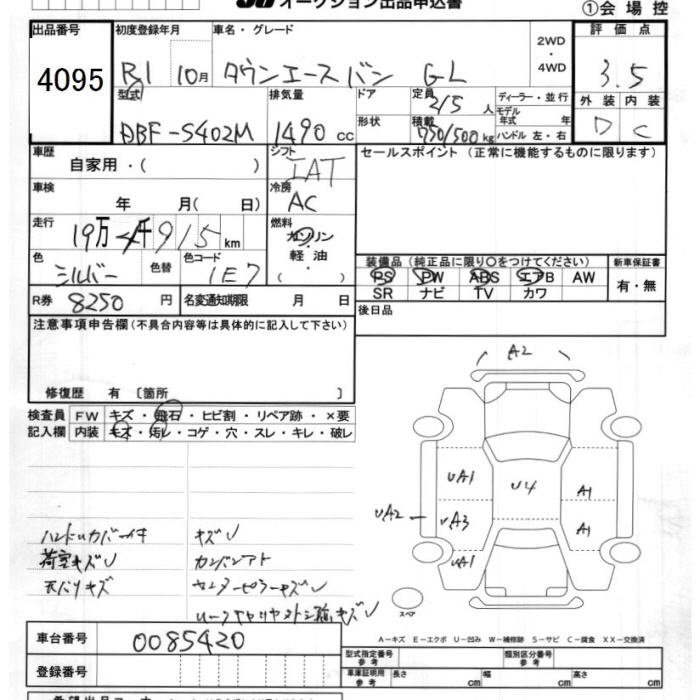 オークション出品申込書 ①会場控
出品番号 初度登録年月 車名・グレード 2WD・4WD 評価点
4095 R1 10月 タウンエースバン GL 3.5
型式 排気量 ドア 定員 2/5人 ディーラー・並行 モデル年式 年 外装 内装
DBF-S402M 1490cc 形状 積載 750/500kg ハンドル 左・右 D C
車歴 自家用・( ) シフト IAT セールスポイント(正常に機能するものに限ります)
車検 年 月( 日) 冷房 AC
走行 19万4千915km 燃料 ガソリン・軽油・( )
色 シルバー 色替 色コード 1E7
装備品(純正品に限り○をつけてください) 新車保証書
PS PW ABS エアB AW 有・無
SR ナビ TV カワ
R券 8250円 名変通知期限 月 日 後日品
注意事項申告欄(不具合内容等は具体的に記入して下さい)
修復歴 有〔箇所 〕
検査員 FW キズ・飛石・ヒビ割・リペア跡・×要
記入欄 内装 キズ・汚レ・コゲ・穴・スレ・キレ・破レ
A2
UA1 U4 A1
UA2 UA3 A1
UA1
スペア
ハンドルカバー付 キズ
荷室キズ カンバンアト
天バリキズ センターピラーキズ
A-キズ E-エクボ U-凹み W-補修跡 S-サビ C-腐食 XX-交換済
車台番号 0085420
登録番号
型式指定番号 参考 類別区分番号 参考
車庫証明用 参考 長さ cm 幅 cm 高さ cm